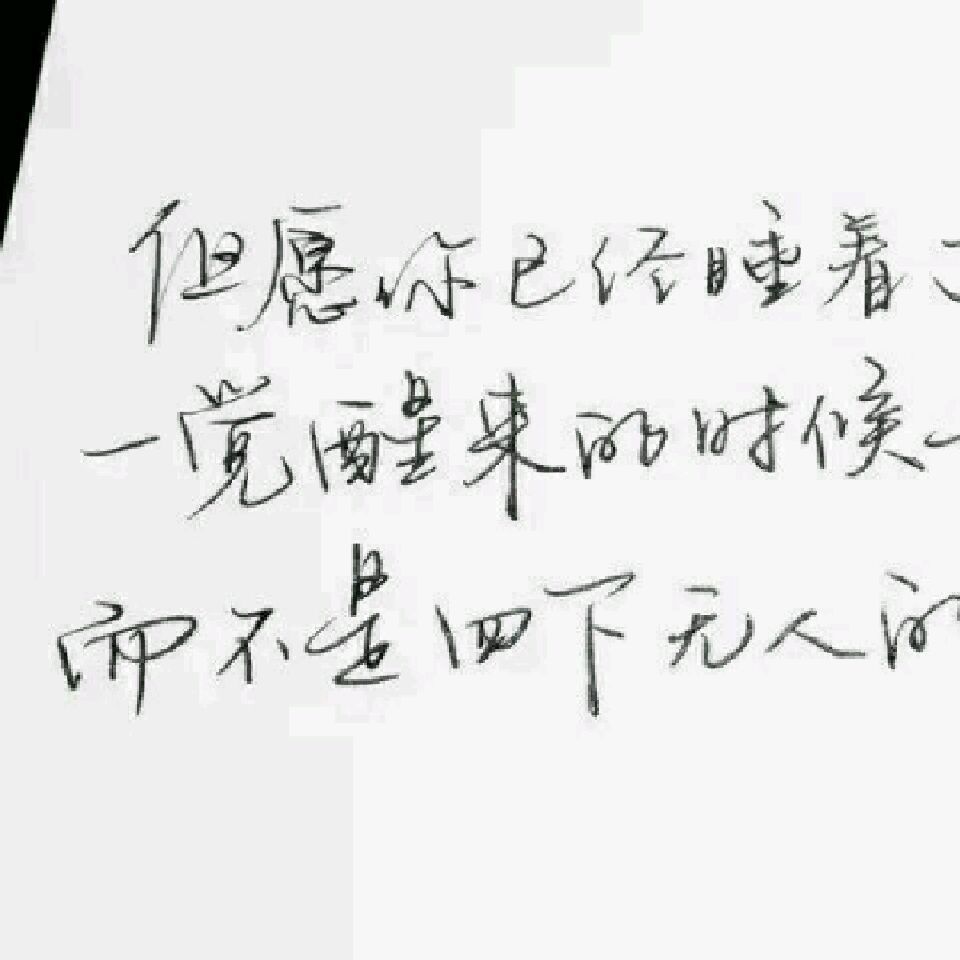 但愿你已经睡着
一觉醒来的时候
而不是四下无人的